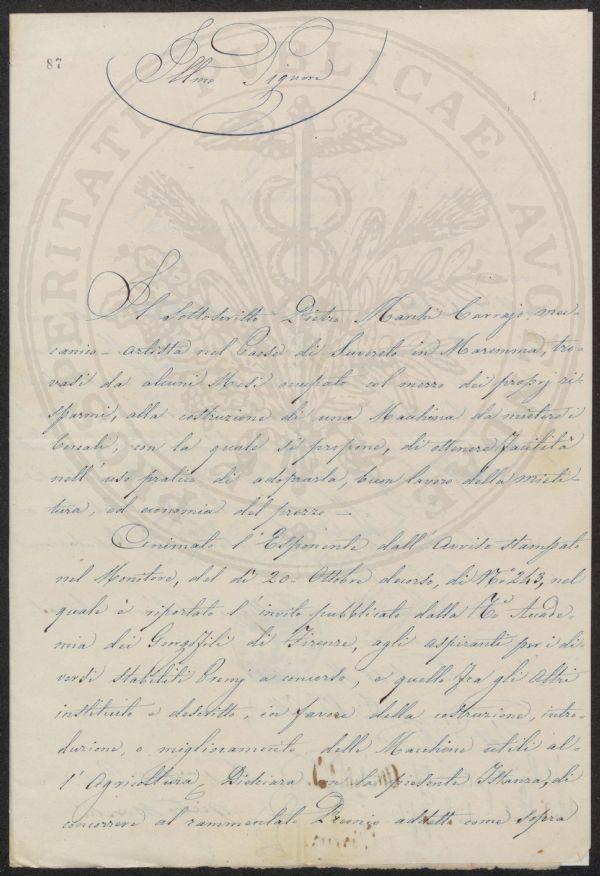 87
Illmo Signore
Il Sottoscritto Pietro Marchi Carrajo, mec-
canico - artista nel Paese di Suvereto in Maremma, tro-
vasi da alcuni Mesi occupato col mezzo dei proprj ri-
sparmi, alla costruzione di una Macchina da mietere i
Cereali, con la quale si propone, di ottenere facilità
nell'uso pratico di adoprarla, buon lavoro della mieti-
tura, ed economia del prezzo —
Animato l'Esponente dall'Avviso stampato
nel Monitore, del dì 20- Ottobre decorso, di No 243, nel
quale è riportato l'invito pubblicato dalla Accade-
mia dei Gergofili di Firenze, agli aspiranti per i di-
versi stabiliti Premj a concorso, e quello fra gli Altri
instituito e descritto, in favore della costruzione, intro-
duzione, o miglioramento delle Macchine utili al-
l'Agricoltura, Dichiara con la presente Istanza, di
concorrere al rammentato Premio addetto come sopra
PROSPERITATI PUBLICAE AUGENDAE